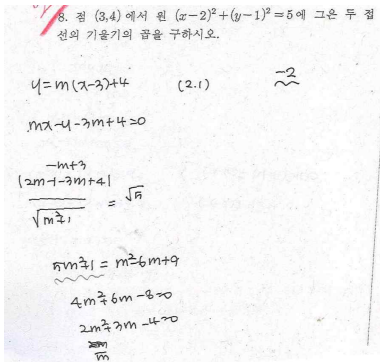 8. 점 (3,4)에서 원 (x-2)²+(y-1)²=5에 그은 두 접
선의 기울기의 곱을 구하시오.
-2
y=m(x-3)+4 (2.1)
mx-y-3m+4=0
-m+3
|2m-1-3m+4|
√m²+1 = √5
5m²+1 = m²-6m+9
4m²+6m-8=0
2m²+3m-4=0